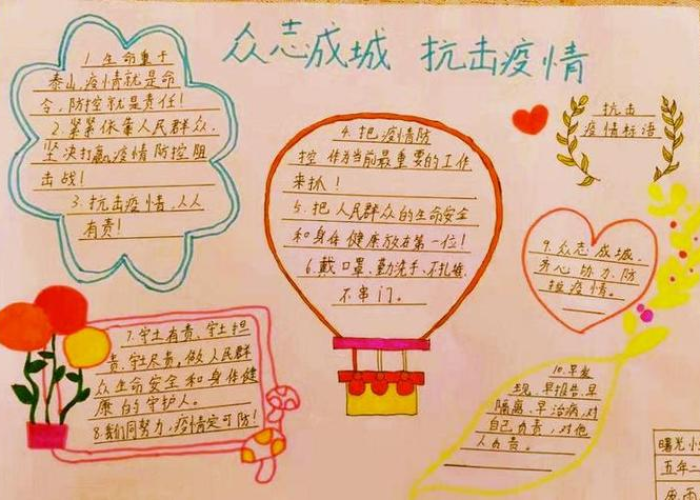 众志成城 抗击疫情
1. 生命重于
泰山,疫情就是命
令,防控就是责任!
2. 紧紧依靠人民群众,
坚决打赢疫情防控阻
击战!
3. 抗击疫情,人人
有责!
4. 把疫情防
控作为当前最重要的工作
来抓!
5. 把人民群众的生命安全
和身体健康放在第一位!
6. 戴口罩、勤洗手、不扎堆、
不串门。
抗击
疫情标语
7. 守土有责、守土担
责、守土尽责,做人民群
众生命安全和身体健
康的守护人。
8. 我们同努力,疫情定可防!
9. 众志成城、
齐心协力、防
控疫情。
10. 早发
现、早报告、早
隔离、早治病,对
自己负责,对他
人负责。
曙光小
五年